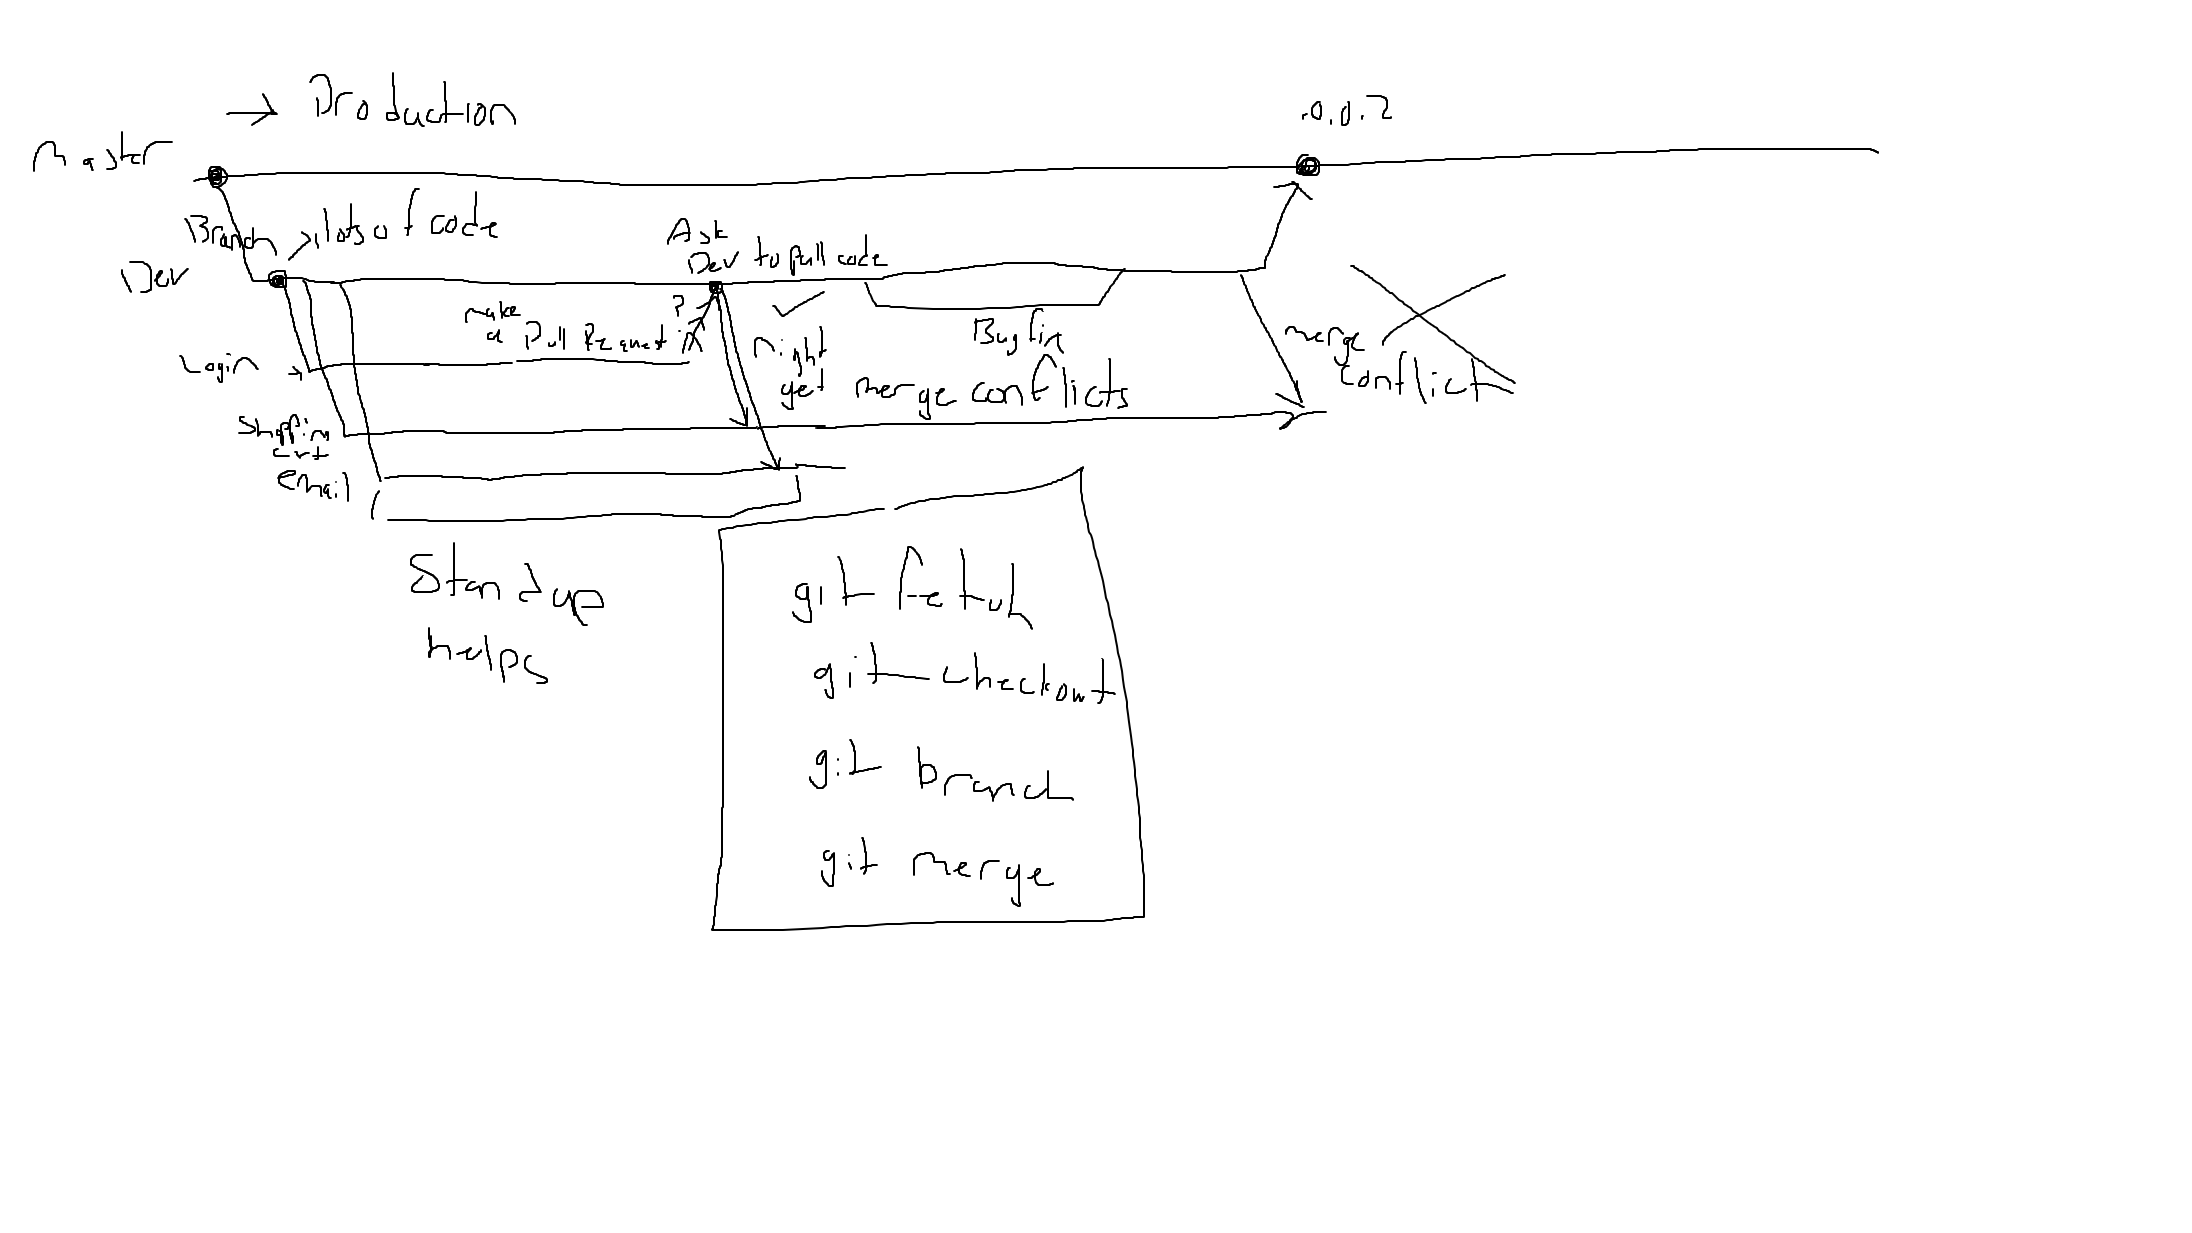 → Production
master
.0.0.2
Branch
lots of code
Dev
Ask
Dev to pull code
make
a Pull Request in
?
Login
might
get merge conflicts
Bug fix
merge
conflict
Shopping
crt
email
Standup
helps
git fetch
git checkout
git branch
git merge